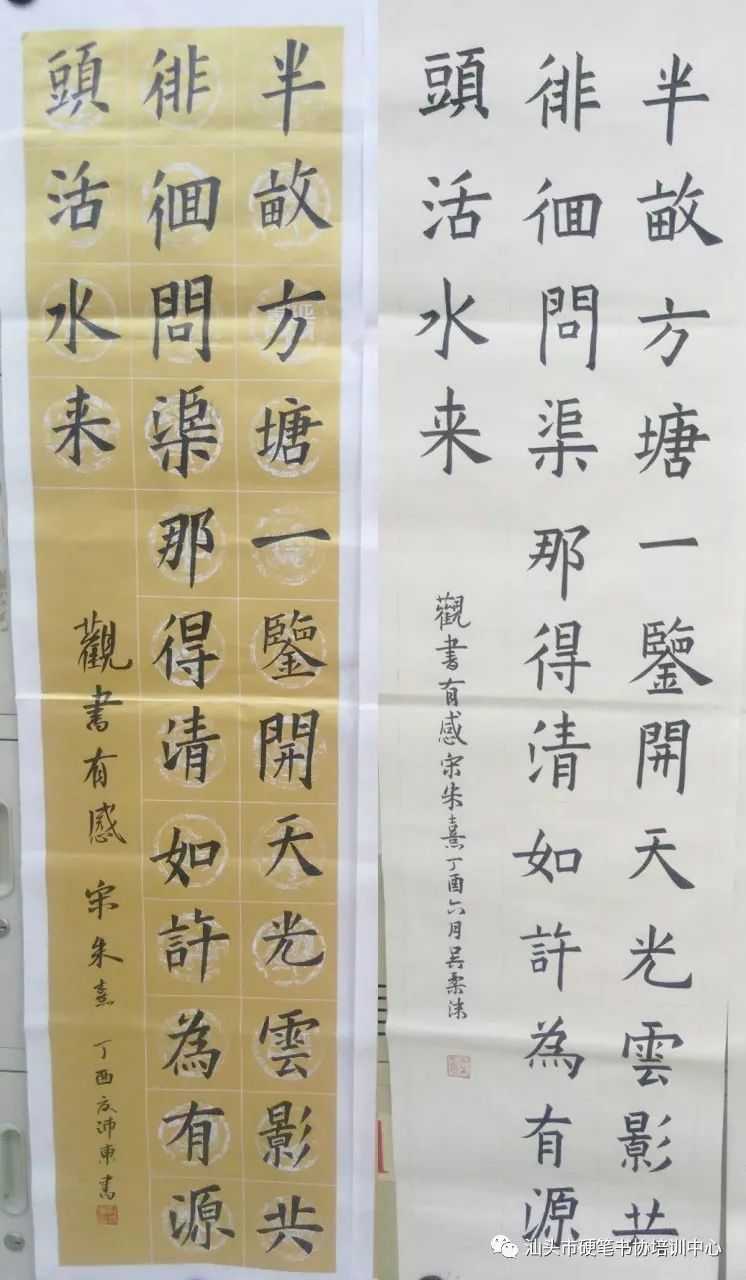 半畝方塘一鑒開天光雲影共
徘徊問渠那得清如許為有源
頭活水来
觀書有感 宋朱熹 丁酉夏沛東書
半畝方塘一鑒開天光雲影共
徘徊問渠那得清如許為有源
頭活水来
觀書有感宋朱熹丁酉六月吴柔
汕头市硬笔书协培训中心